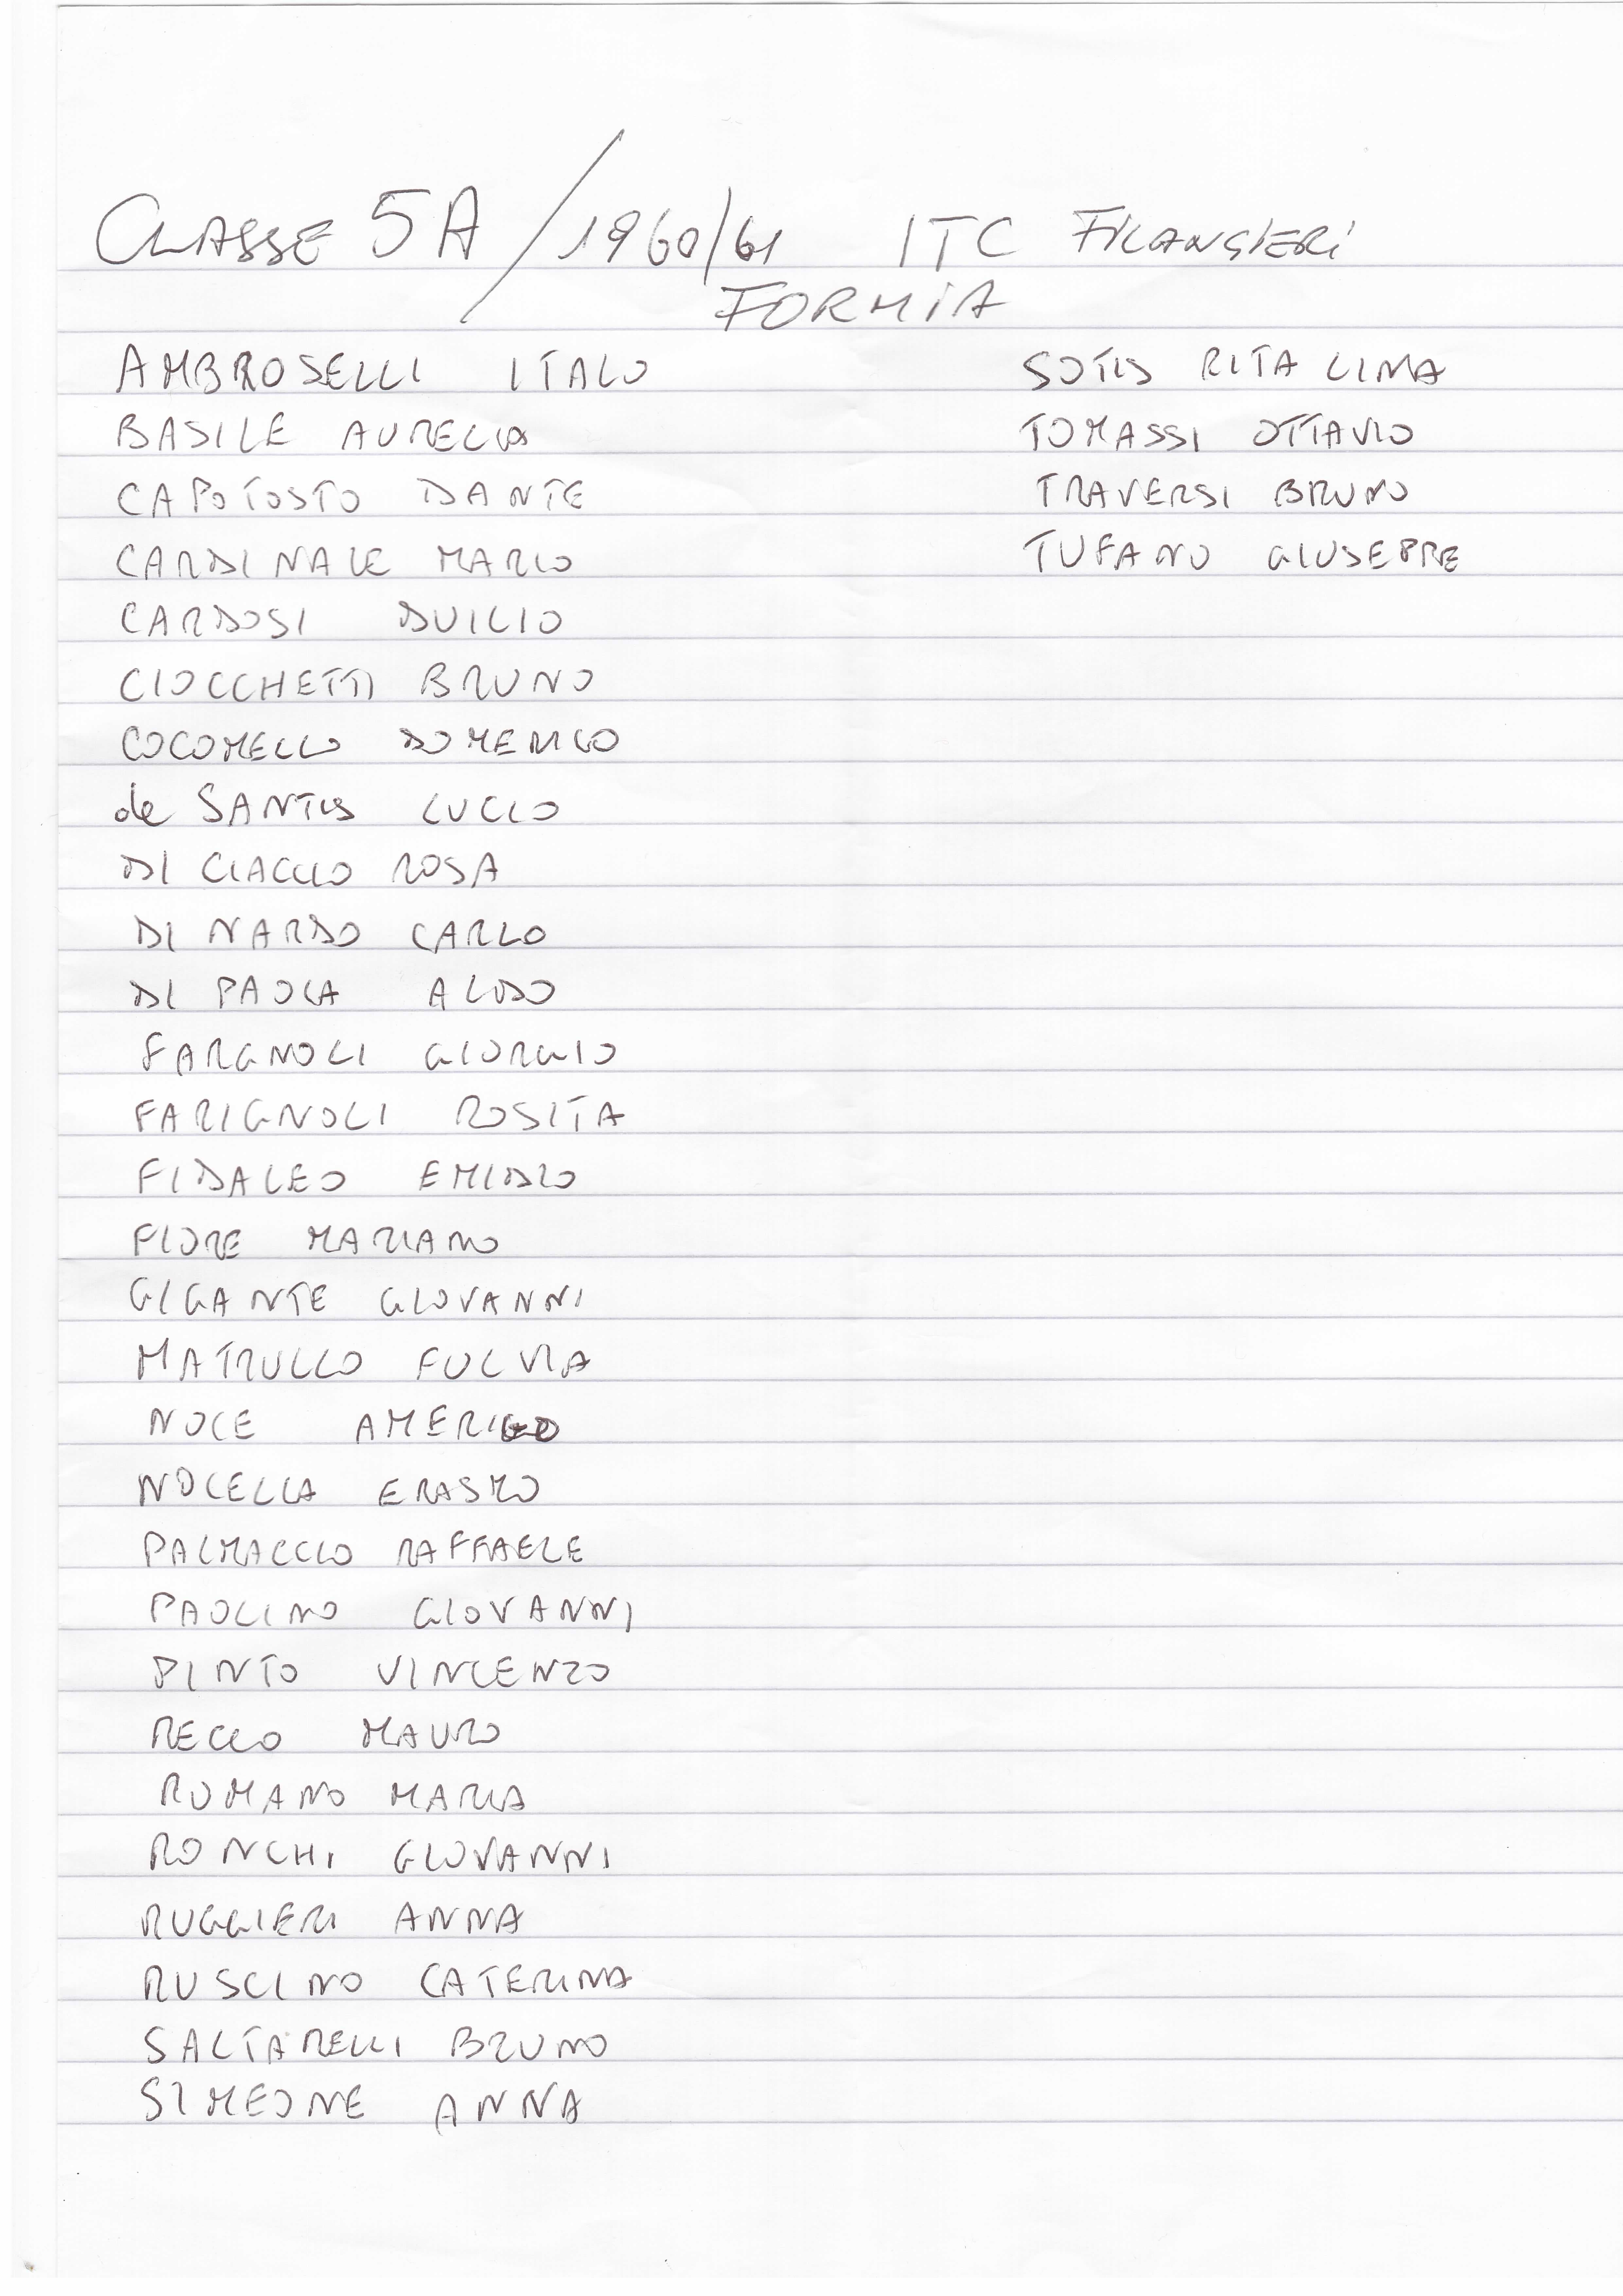 CLASSE 5A / 1960/61 ITC FILANGIERI
FORMIA
AMBROSELLI ITALO
BASILE AURELIA
CAPOTOSTO DANTE
CARDINALE MARIO
CARDOSI DUILIO
CIOCCHETTI BRUNO
COCOMELLO DOMENICO
de SANTIS LUCIO
DI CIACCIO ROSA
DI NARDO CARLO
DI PAOLA ALDO
FARGNOLI GIORGIO
FARIGNOLI ROSITA
FIDALEO EMIDIO
FIORE MARIANO
GIGANTE GIOVANNI
MATRULLO FULVIA
NOCE AMERIGO
NOCELLA ERASMO
PALMACCIO RAFFAELE
PAOLINO GIOVANNI
PINTO VINCENZO
RECCO MAURO
ROMANO MARIA
RONCHI GIOVANNI
RUGGIERI ANNA
RUSCINO CATERINA
SALTARELLI BRUNO
SIMEONE ANNA
SOTIS RITA LIMA
TOMASSI OTTAVIO
TRAVERSI BRUNO
TUFANO GIUSEPPE